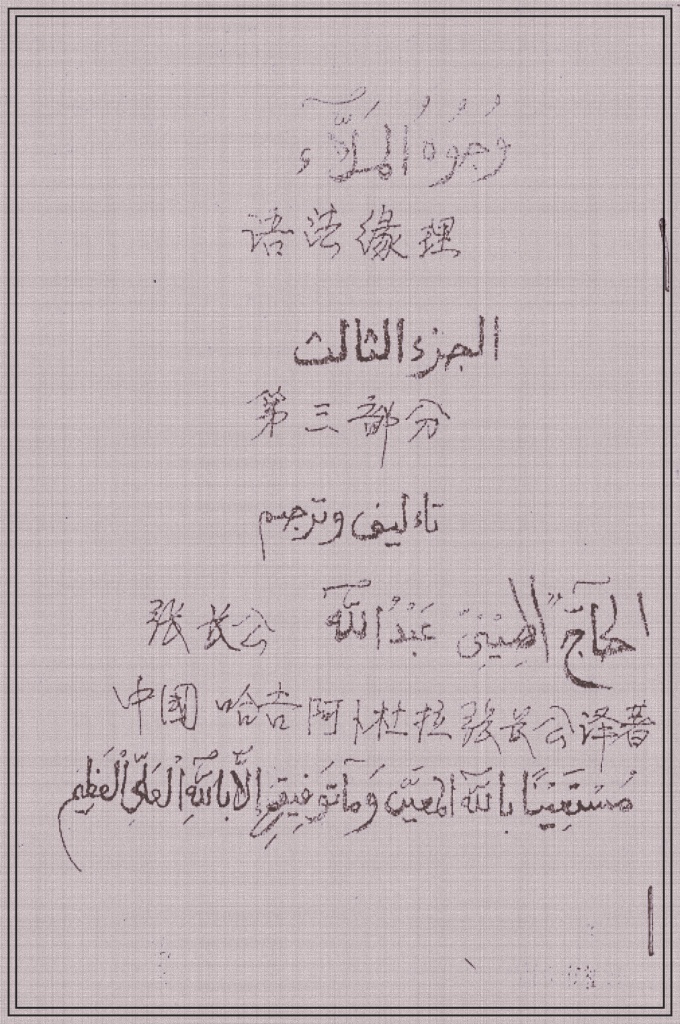 وُجُوهُ المَلَآء
语法缘理
الجزء الثالث
第三部分
تاءليف وترجم
الحَاجّ الصِينِيّ عَبْدُ اللّٰه 张长公
中国哈吉阿卜杜拉张长公译著
مُسْتَعِينًا بِاللّٰهِ المعين وَمَا تَوْفِيقِي إِلَّا بِاللّٰهِ الْعَلِيِّ الْعَظِيم